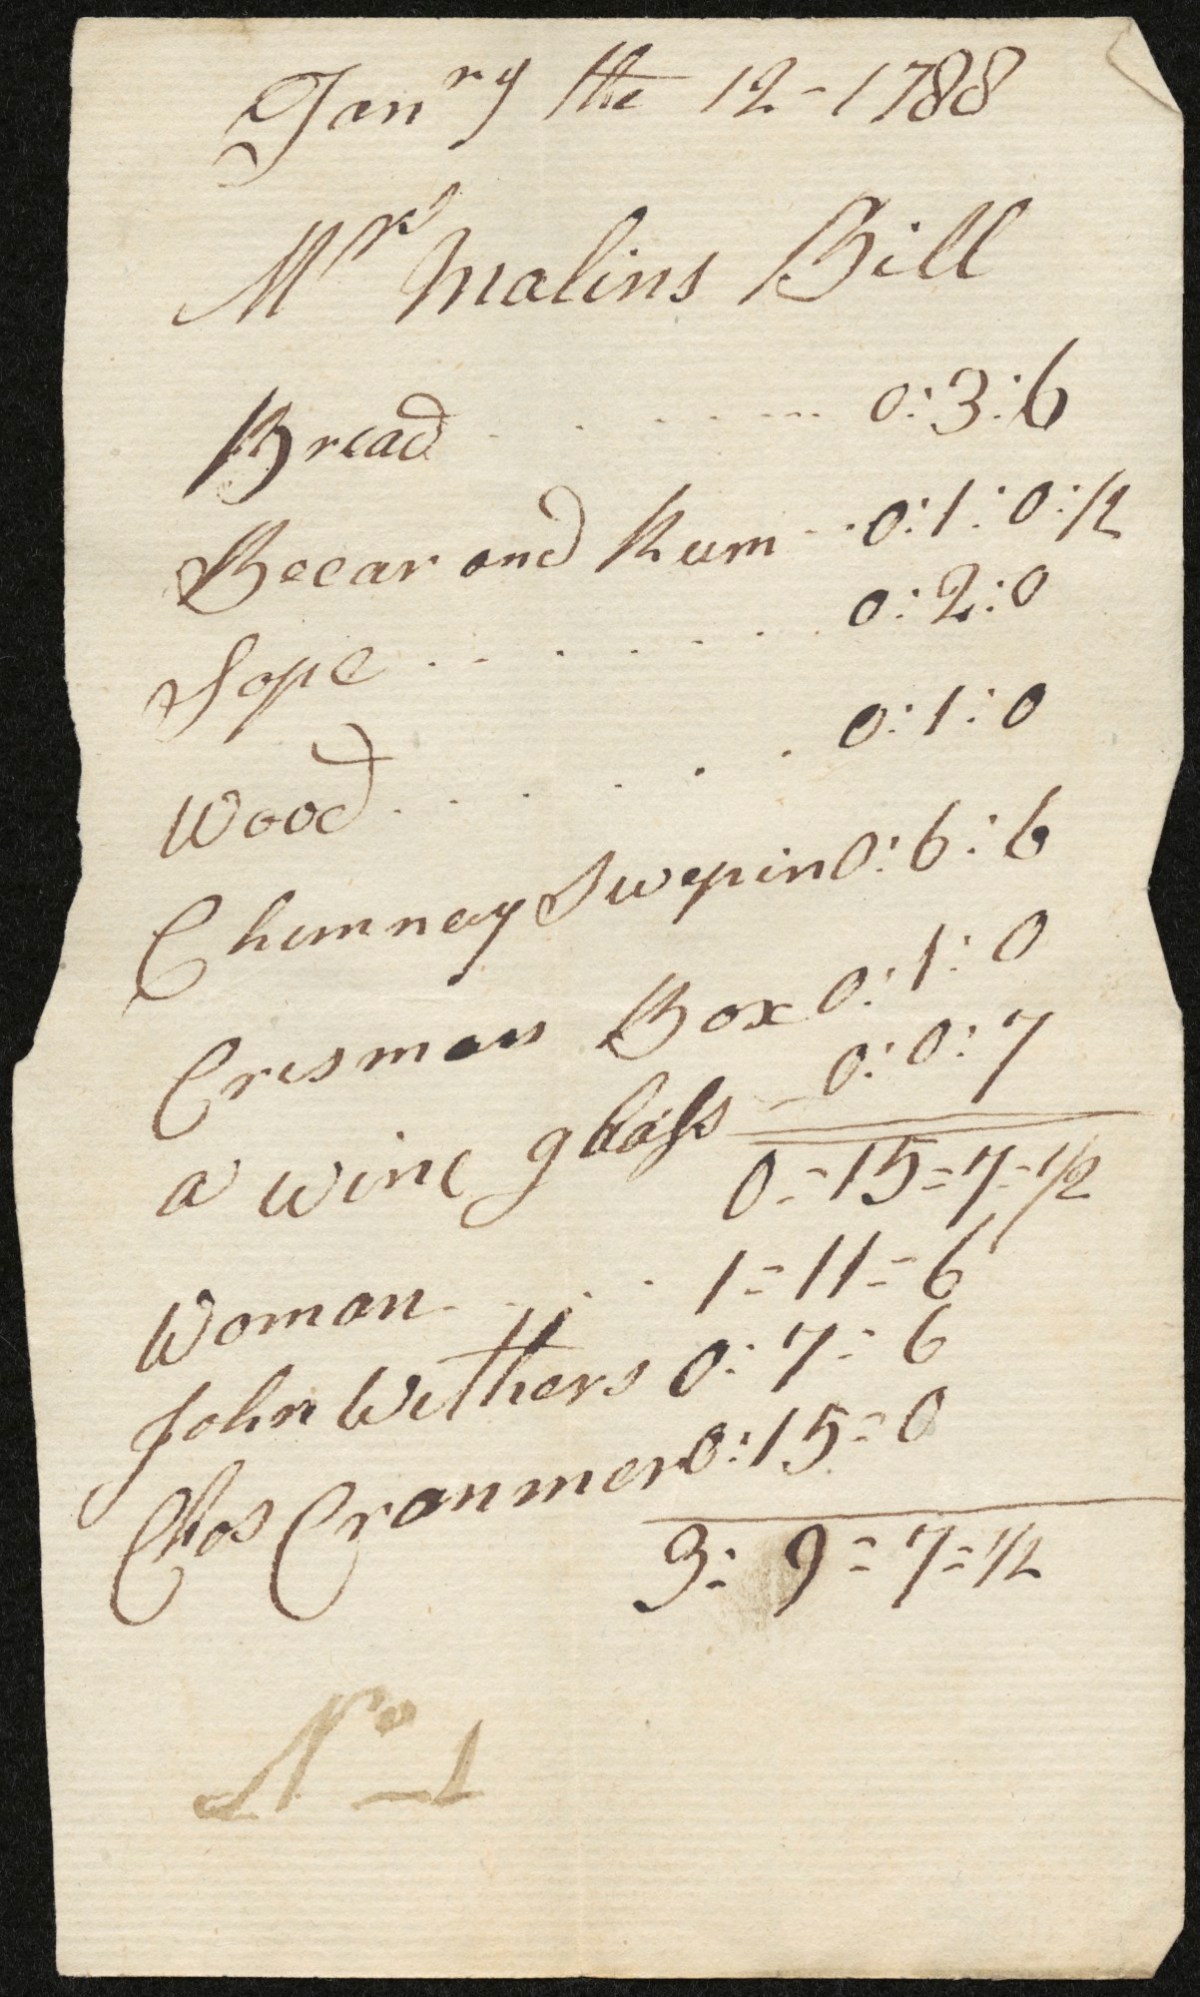 Janry the 12-1788
Mrs Malins Bill
Bread ........ 0:3:6
Beear and Rum -- 0:1:0:1/2
Sope ........ 0:2:0
Wood ...... 0:1:0
Chimney Swepin 0:6:6
Crismas Box 0:1:0
a wine glass - 0:0:7
0=15=7=1/2
Woman .... 1=11=6
John Withers 0:7=6
Chos Cranmer 0:15=0
3:9=7=1/2
No 1